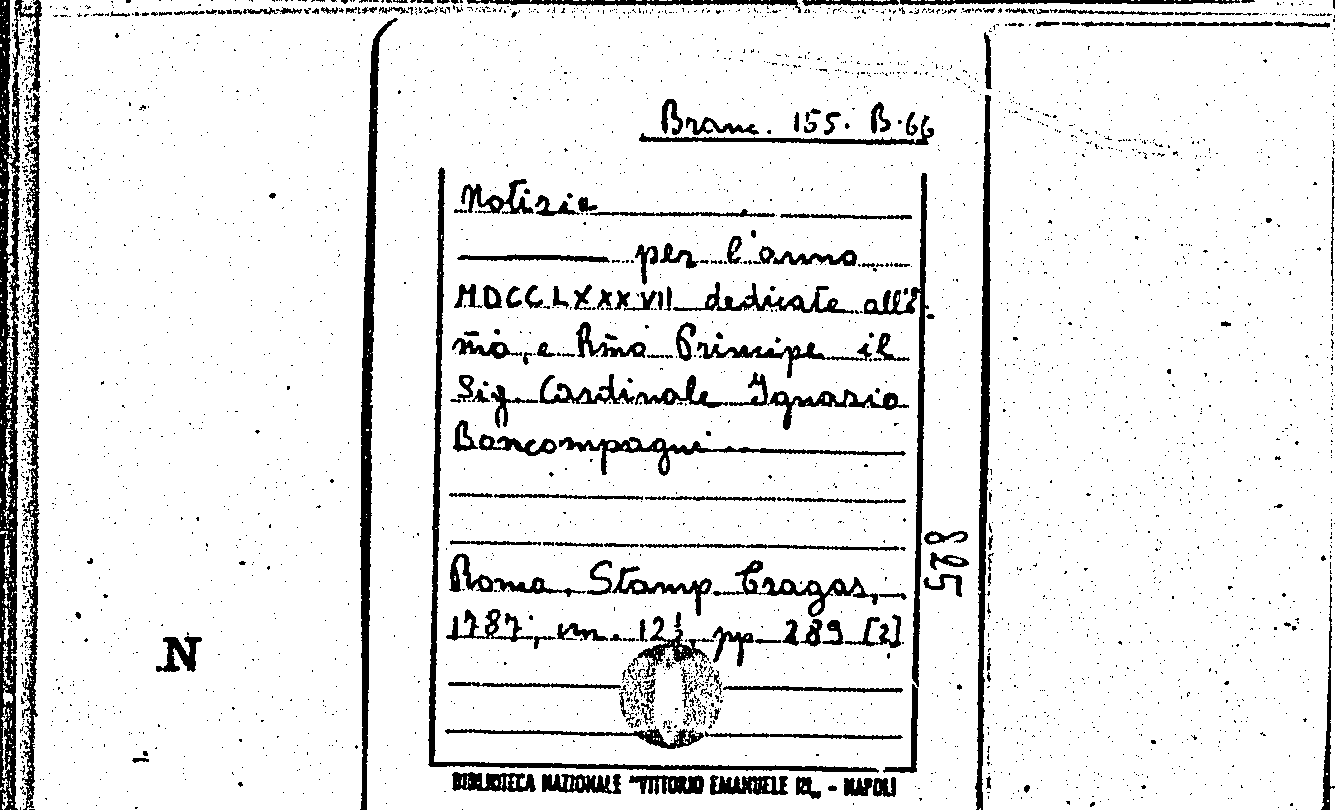 Branc. 155. B. 66
Notizie
per l'anno
MDCCLXXXVII dedicate all'E.
m̄o, e Rm̄o Principe il
Sig. Cardinale Ignazio
Boncompagni
Roma, Stamp. Cragas,
1787, in. 12º, pp. 289 [2]
825
N
BIBLIOTECA NAZIONALE "VITTORIO EMANUELE III" - NAPOLI